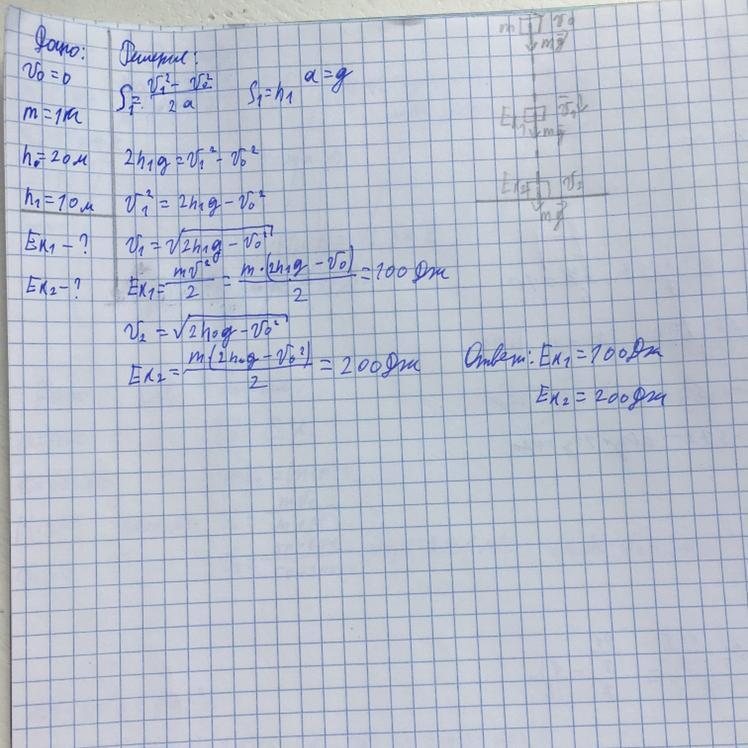 Дано:
v₀ = 0
m = 1кг
h₀ = 20м
h₁ = 10м
Eк₁ - ?
Eк₂ - ?
Решение:
S₁ = (v₁² - v₀²) / 2a   S₁ = h₁   a = g
2h₁g = v₁² - v₀²
v₁² = 2h₁g - v₀²
v₁ = √(2h₁g - v₀²)
Eк₁ = mv²/2 = m·(2h₁g - v₀)/2 = 100Дж
v₂ = √(2h₀g - v₀²)
Eк₂ = m(2h₀g - v₀²)/2 = 200Дж
Ответ: Eк₁ = 100Дж
Eк₂ = 200Дж
m v₀
mg
Eк₁ v₁
mg
Eк₂ v₂
mg